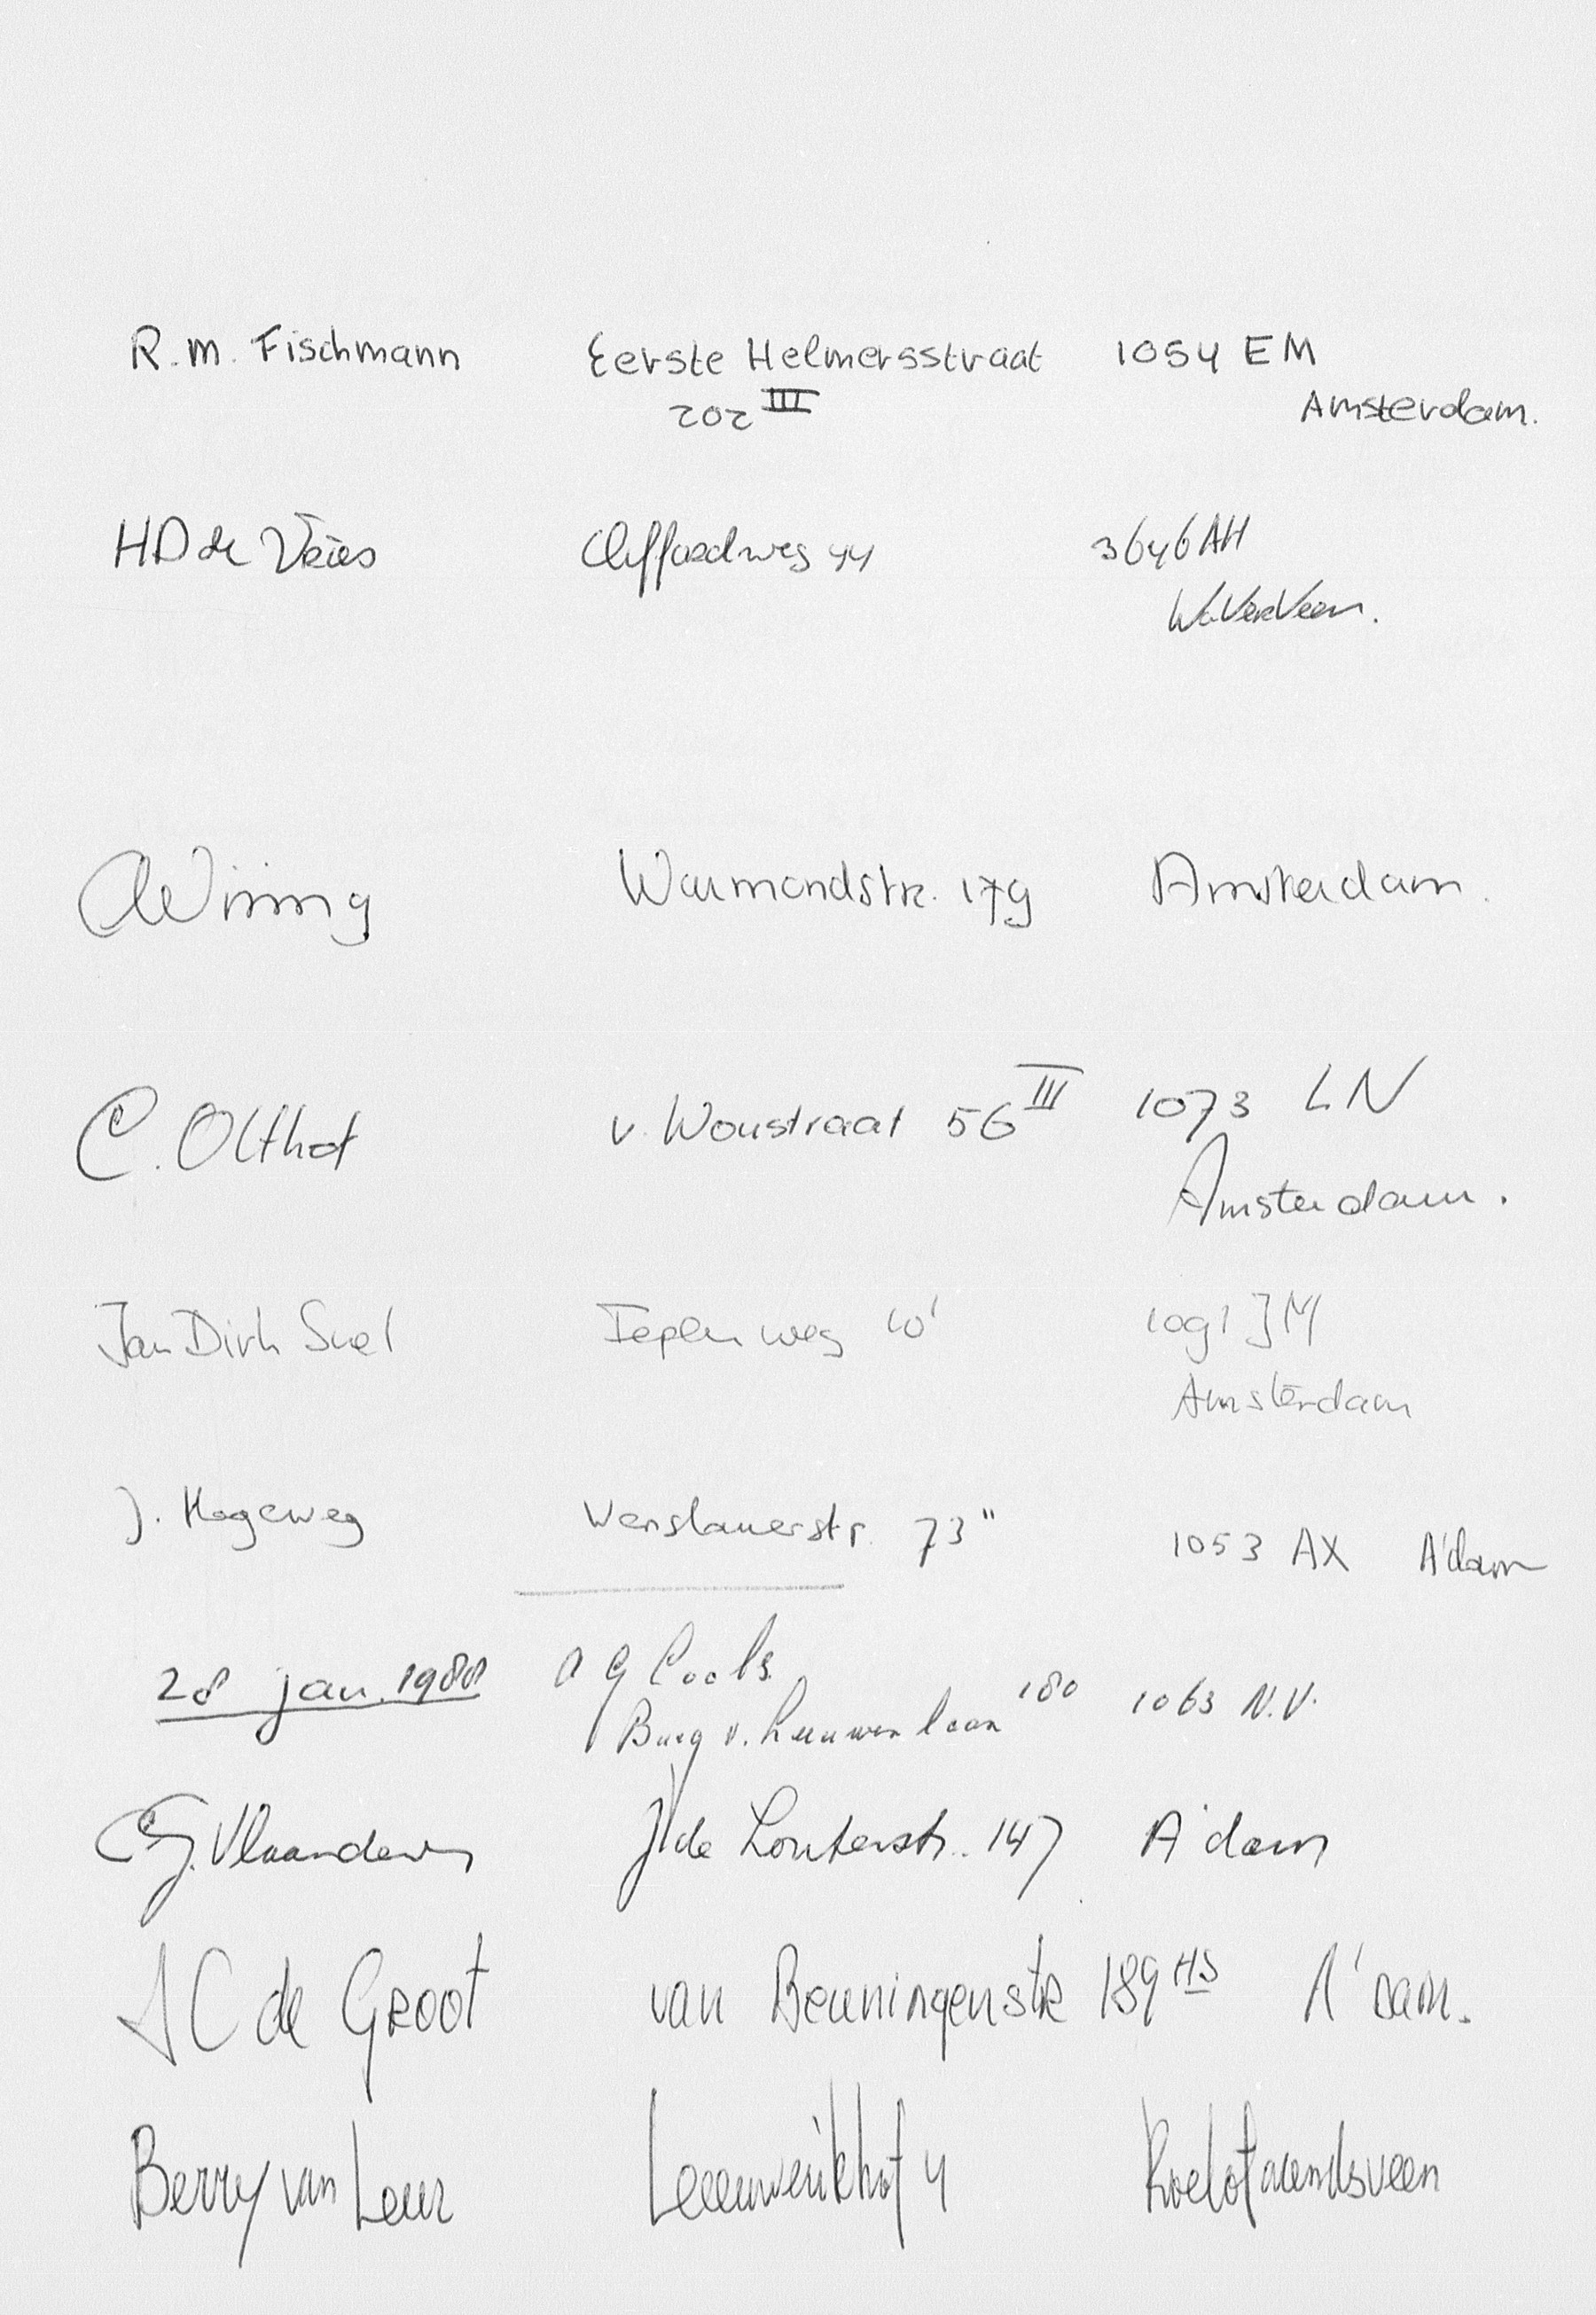 R.M. Fischmann Eerste Helmersstraat 1054 EM
202 III Amsterdam.
HD de Vries Cliffordweg 44 3646AH
WaVerVeen.
Warmondstr. 179 Amsterdam.
C. Olthof v. Woustraat 56 III 1073 LN
Amsterdam.
Jan Dirk Snel weg 10' 1091 JM
Amsterdam
J. Hogeweg Wenslauerstr. 73" 1053 AX A'dam
28 jan. 1988 A G Cools
Burg v. Leeuwenlaan 180 1063 N.V.
Vlaanderen J de Louterstr. 147 A'dam
JC de GROOT van Beuningenstr 189 HS A'DAM.
Berry van Leur Leeuwerikhof 4 Roelofarendsveen